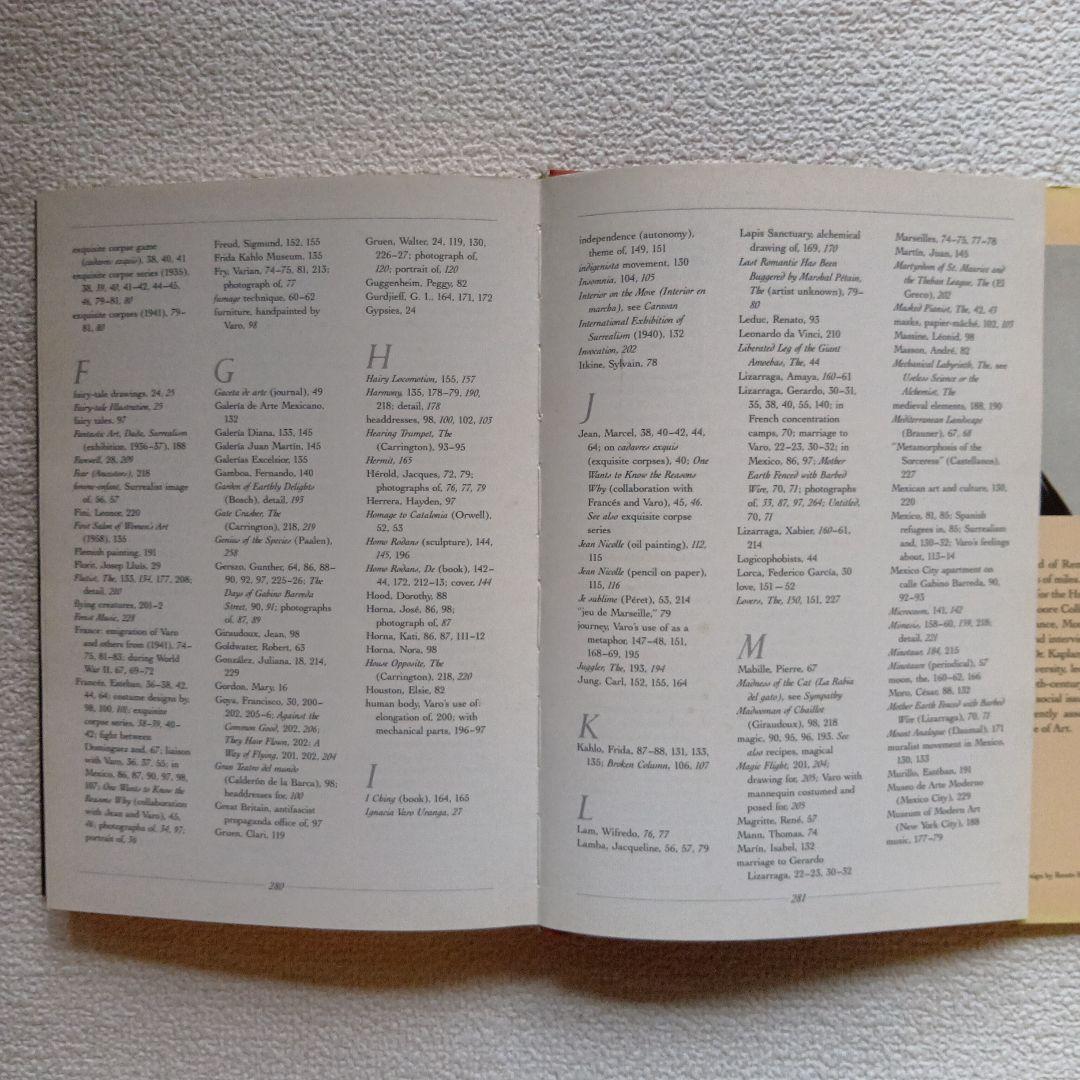 exquisite corpse game
(cadavres exquis), 38, 40, 41
exquisite corpse series (1935),
38, 39, 40, 41–42, 44–45,
46, 79–81, 80
exquisite corpses (1941), 79–
81, 80
F
fairy-tale drawings, 24, 25
Fairy-tale Illustration, 25
fairy tales, 97
Fantastic Art, Dada, Surrealism
(exhibition, 1936–37), 188
Farewell, 28, 209
Fear (Ancestors), 218
femme-enfant, Surrealist image
of, 56, 57
Fini, Leonor, 220
First Salon of Women's Art
(1958), 135
Flemish painting, 191
Florit, Josep Lluis, 29
Flutist, The, 133, 134, 177, 208;
detail, 210
flying creatures, 201–2
Forest Music, 228
France: emigration of Varo
and others from (1941), 74–
75, 81–83; during World
War II, 67, 69–72
Francés, Esteban, 36–38, 42,
44, 64; costume designs by,
98, 100, 101; exquisite
corpse series, 38–39, 40–
42; fight between
Dominguez and, 67; liaison
with Varo, 36, 37, 55; in
Mexico, 86, 87, 90, 97, 98,
107; One Wants to Know the
Reasons Why (collaboration
with Jean and Varo), 45,
46; photographs of, 34, 97;
portrait of, 36
Freud, Sigmund, 152, 155
Frida Kahlo Museum, 135
Fry, Varian, 74–75, 81, 213;
photograph of, 77
fumage technique, 60–62
furniture, handpainted by
Varo, 98
G
Gaceta de arte (journal), 49
Galería de Arte Mexicano,
132
Galería Diana, 133, 145
Galería Juan Martín, 145
Galerías Excelsior, 135
Gamboa, Fernando, 140
Garden of Earthly Delights
(Bosch), detail, 193
Gate Crasher, The
(Carrington), 218, 219
Genius of the Species (Paalen),
258
Gerszo, Gunther, 64, 86, 88–
90, 92, 97, 225–26; The
Days of Gabino Barreda
Street, 90, 91; photographs
of, 87, 89
Giraudoux, Jean, 98
Goldwater, Robert, 63
González, Juliana, 18, 214,
229
Gordon, Mary, 16
Goya, Francisco, 30, 200–
202, 205–6; Against the
Common Good, 202, 206;
They Have Flown, 202; A
Way of Flying, 201, 202, 204
Gran Teatro del mundo
(Calderón de la Barca), 98;
headdresses for, 100
Great Britain, antifascist
propaganda office of, 97
Gruen, Clari, 119
Gruen, Walter, 24, 119, 130,
226–27; photograph of,
120; portrait of, 120
Guggenheim, Peggy, 82
Gurdjieff, G. I., 164, 171, 172
Gypsies, 24
H
Hairy Locomotion, 155, 157
Harmony, 135, 178–79, 190,
218; detail, 178
headdresses, 98, 100, 102, 103
Hearing Trumpet, The
(Carrington), 93–95
Hermit, 165
Hérold, Jacques, 72, 79;
photographs of, 76, 77, 79
Herrera, Hayden, 97
Homage to Catalonia (Orwell),
52, 53
Homo Rodans (sculpture), 144,
145, 196
Homo Rodans, De (book), 142–
44, 172, 212–13; cover, 144
Hood, Dorothy, 88
Horna, José, 86, 98;
photograph of, 87
Horna, Kati, 86, 87, 111–12
Horna, Nora, 98
House Opposite, The
(Carrington), 218, 220
Houston, Elsie, 82
human body, Varo's use of:
elongation of, 200; with
mechanical parts, 196–97
I
I Ching (book), 164, 165
Ignacia Varo Uranga, 27
280
independence (autonomy),
theme of, 149, 151
indigenista movement, 130
Insomnia, 104, 105
Interior on the Move (Interior en
marcha), see Caravan
International Exhibition of
Surrealism (1940), 132
Invocation, 202
Itkine, Sylvain, 78
J
Jean, Marcel, 38, 40–42, 44,
64; on cadavres exquis
(exquisite corpses), 40; One
Wants to Know the Reasons
Why (collaboration with
Francés and Varo), 45, 46.
See also exquisite corpse
series
Jean Nicolle (oil painting), 112,
115
Jean Nicolle (pencil on paper),
115, 116
Je sublime (Péret), 53, 214
"jeu de Marseille," 79
journey, Varo's use of as a
metaphor, 147–48, 151,
168–69, 195
Juggler, The, 193, 194
Jung, Carl, 152, 155, 164
K
Kahlo, Frida, 87–88, 131, 133,
135; Broken Column, 106, 107
L
Lam, Wifredo, 76, 77
Lamba, Jacqueline, 56, 57, 79
Lapis Sanctuary, alchemical
drawing of, 169, 170
Last Romantic Has Been
Buggered by Marshal Pétain,
The (artist unknown), 79–
80
Leduc, Renato, 93
Leonardo da Vinci, 210
Liberated Leg of the Giant
Amoebas, The, 44
Lizarraga, Amaya, 160–61
Lizarraga, Gerardo, 30–31,
35, 38, 40, 55, 140; in
French concentration
camps, 70; marriage to
Varo, 22–23, 30–32; in
Mexico, 86, 97; Mother
Earth Fenced with Barbed
Wire, 70, 71; photographs
of, 33, 87, 97, 264; Untitled,
70, 71
Lizarraga, Xabier, 160–61,
214
Logicophobists, 44
Lorca, Federico García, 30
love, 151–52
Lovers, The, 150, 151, 227
M
Mabille, Pierre, 67
Madness of the Cat (La Rabia
del gato), see Sympathy
Madwoman of Chaillot
(Giraudoux), 98, 218
magic, 90, 95, 96, 193. See
also recipes, magical
Magic Flight, 201, 204;
drawing for, 205; Varo with
mannequin costumed and
posed for, 205
Magritte, René, 57
Mann, Thomas, 74
Marín, Isabel, 132
marriage to Gerardo
Lizarraga, 22–23, 30–32
Marseilles, 74–75, 77–78
Martín, Juan, 145
Martyrdom of St. Maurice and
the Theban League, The (El
Greco), 202
Masked Pianist, The, 42, 43
masks, papier-mâché, 102, 103
Massine, Léonid, 98
Masson, André, 82
Mechanical Labyrinth, The, see
Useless Science or the
Alchemist, The
medieval elements, 188, 190
Mediterranean Landscape
(Brauner), 67, 68
"Metamorphosis of the
Sorceress" (Castellanos),
227
Mexican art and culture, 130,
220
Mexico, 81, 85; Spanish
refugees in, 85; Surrealism
and, 130–32; Varo's feelings
about, 113–14
Mexico City apartment on
calle Gabino Barreda, 90,
92–93
Microcosm, 141, 142
Mimesis, 158–60, 159, 218;
detail, 221
Minotaur, 184, 215
Minotaure (periodical), 57
moon, the, 160–62, 166
Moro, César, 88, 132
Mother Earth Fenced with Barbed
Wire (Lizarraga), 70, 71
Mount Analogue (Daumal), 171
muralist movement in Mexico,
130, 133
Murillo, Estéban, 191
Museo de Arte Moderno
(Mexico City), 229
Museum of Modern Art
(New York City), 188
music, 177–79
281
d of Rem
s of miles
for the Ho
oore Coll
ance, Mos
nd intervi
Dr. Kaplan
versity, lec
th-century
social iss
ently asso
e of Art.
sign by Renato